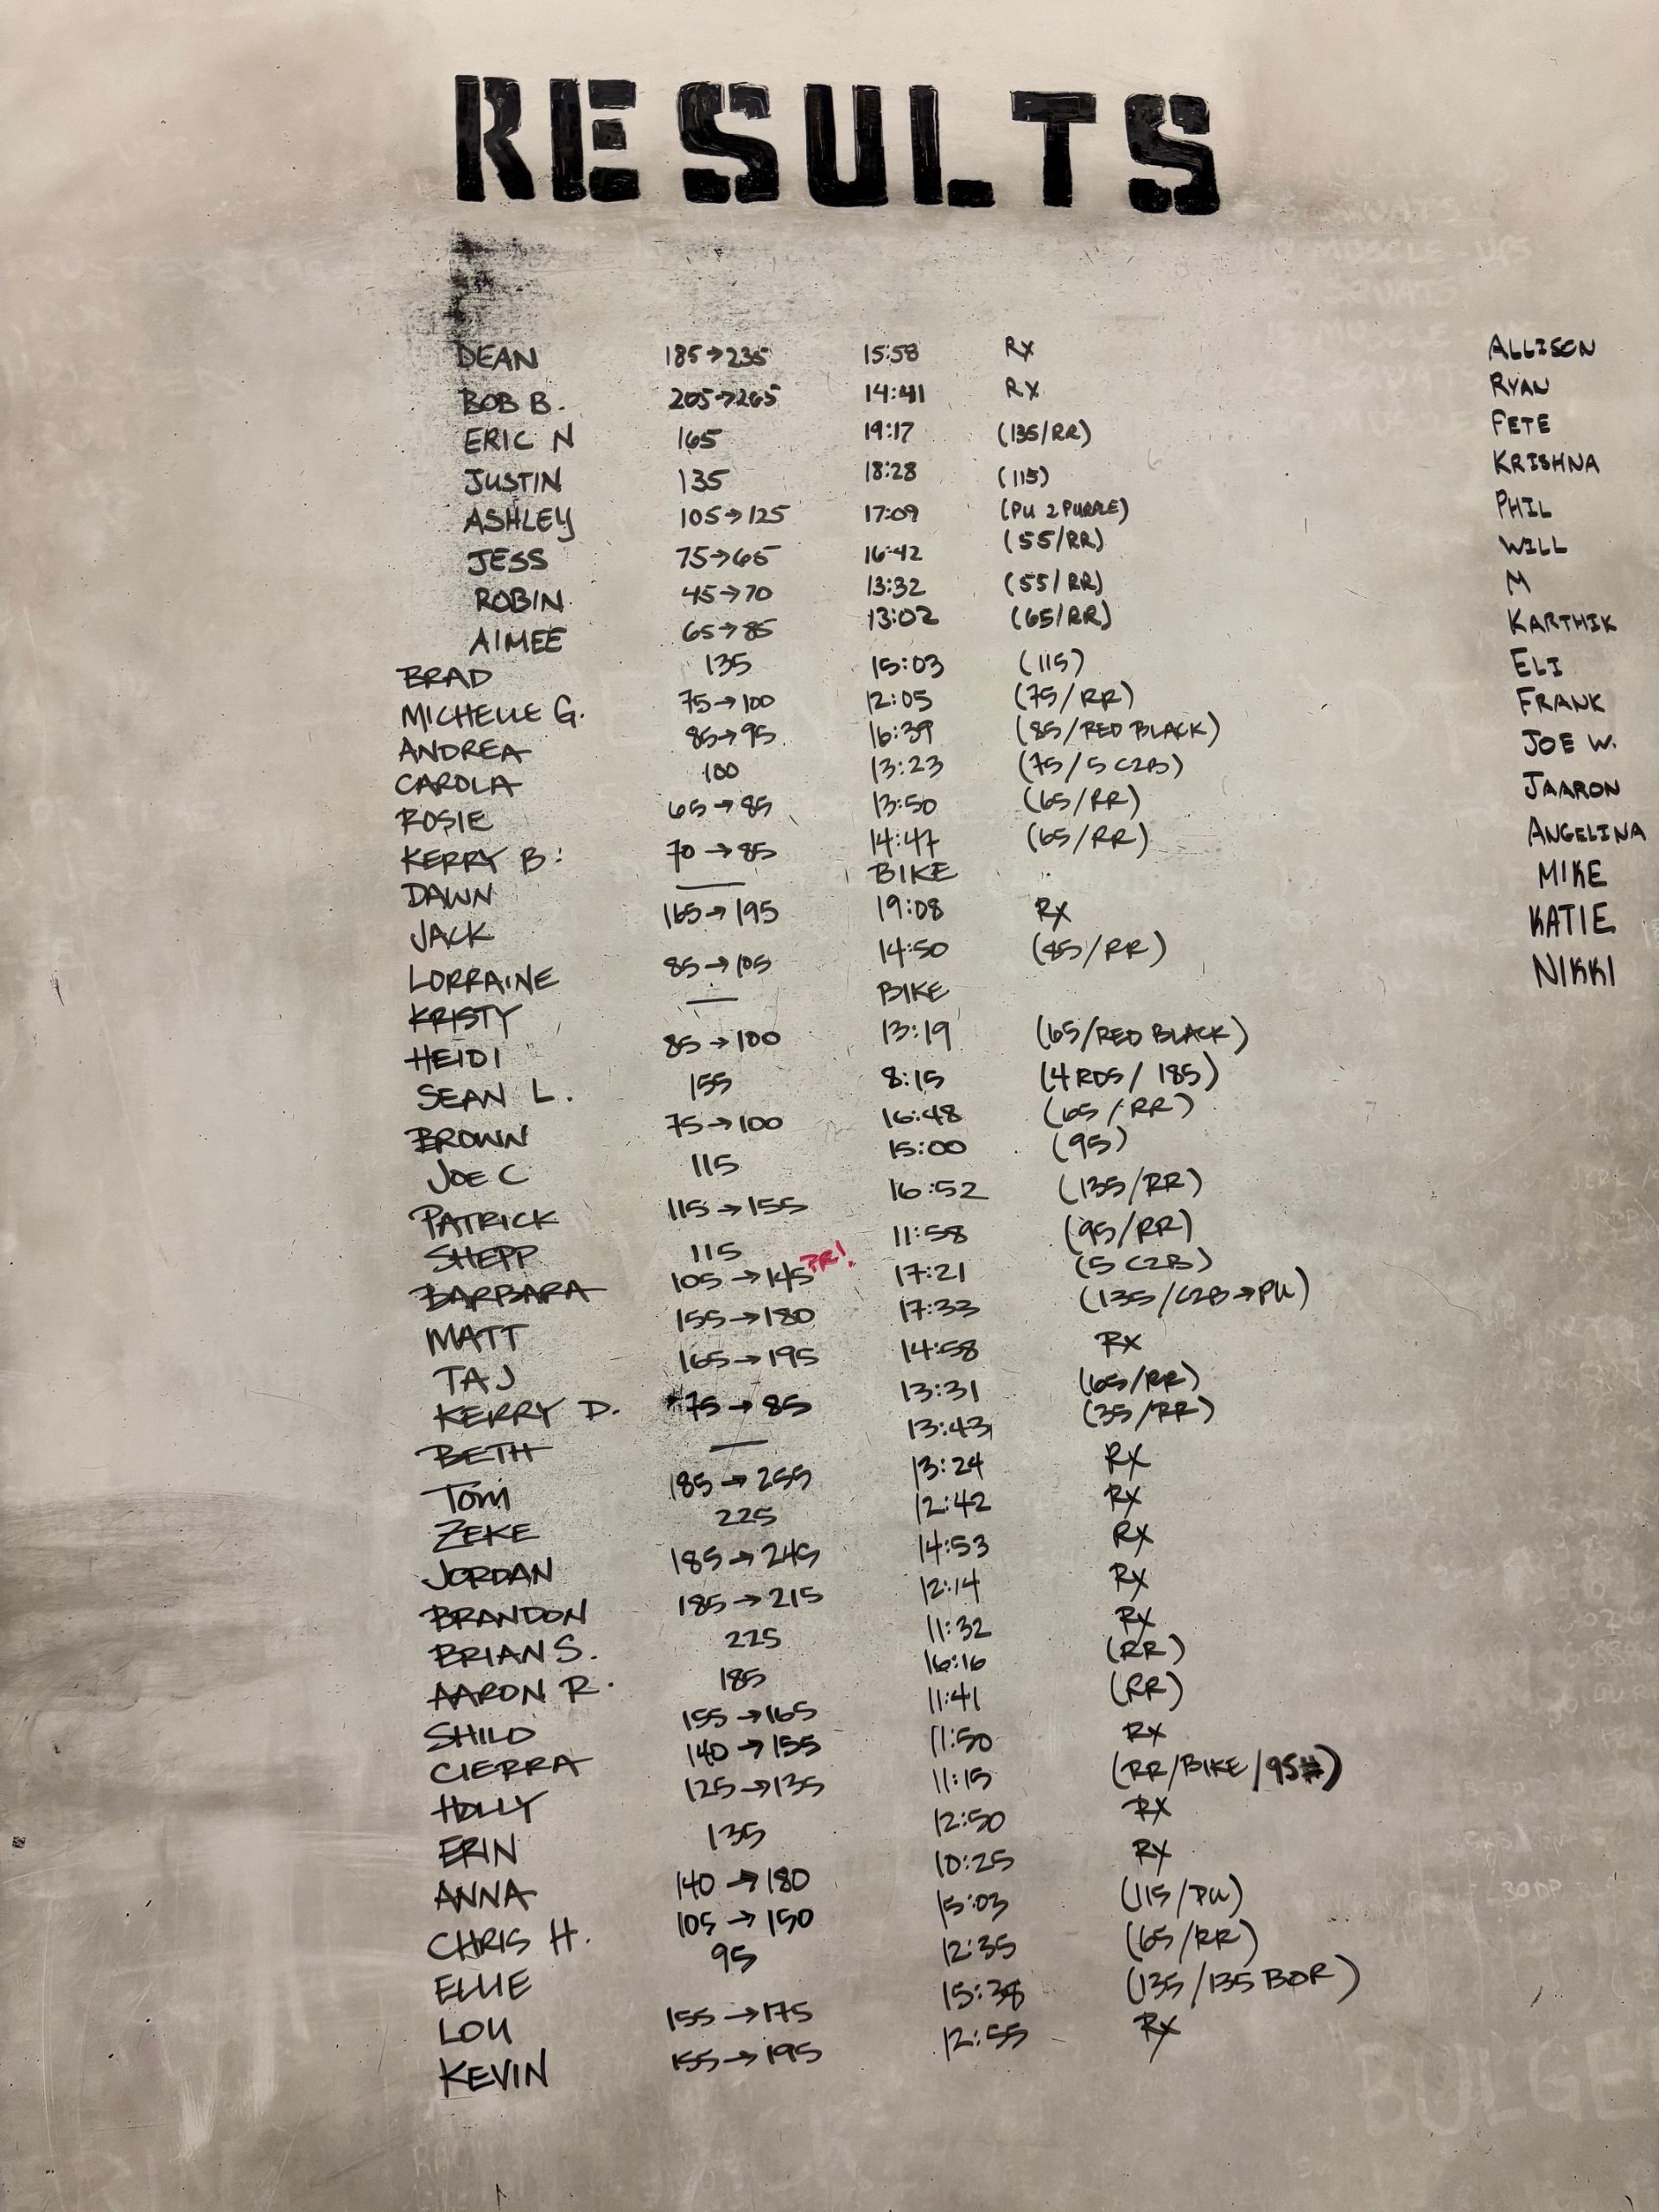 RESULTS
DEAN 185→235 15:58 RX
BOB B. 205→265 14:41 RX
ERIC N 165 19:17 (135/RR)
JUSTIN 135 18:28 (115)
ASHLEY 105→125 17:09 (PU 2 PURPLE)
JESS 75→65 16:42 (55/RR)
ROBIN 45→70 13:32 (55/RR)
AIMEE 65→85 13:02 (65/RR)
BRAD 135 15:03 (115)
MICHELLE G. 75→100 12:05 (75/RR)
ANDREA 85→95 16:39 (85/RED BLACK)
CAROLA 100 13:23 (75/5 C2B)
ROSIE 65→85 13:50 (65/RR)
KERRY B. 70→85 14:47 (65/RR)
DAWN — BIKE
JACK 165→195 19:08 RX
LORRAINE 85→105 14:50 (85/RR)
KRISTY — BIKE
HEIDI 85→100 13:19 (65/RED BLACK)
SEAN L. 155 8:15 (4 RDS/185)
BROWN 75→100 16:48 (65/RR)
JOE C 115 15:00 (95)
PATRICK 115→155 16:52 (135/RR)
SHEPP 115 11:58 (95/RR)
BARBARA 105→145 PR! 17:21 (5 C2B)
MATT 155→180 17:33 (135/C2B→PU)
TAJ 165→195 14:58 RX
KERRY D. 75→85 13:31 (65/RR)
BETH — 13:43 (35/RR)
TOM 185→255 13:24 RX
ZEKE 225 12:42 RX
JORDAN 185→245 14:53 RX
BRANDON 185→215 12:14 RX
BRIAN S. 225 11:32 RX
AARON R. 185 16:16 (RR)
SHILO 155→165 11:41 (RR)
CIERRA 140→155 11:50 RX
HOLLY 125→135 11:15 (RR/BIKE/95#)
ERIN 135 12:50 RX
ANNA 140→180 10:25 RX
CHRIS H. 105→150 15:03 (115/PU)
ELLIE 95 12:35 (65/RR)
LOU 155→175 15:38 (135/135 BOR)
KEVIN 155→195 12:55 RX
ALLISON
RYAN
PETE
KRISHNA
PHIL
WILL
M
KARTHIK
ELI
FRANK
JOE W.
JAARON
ANGELINA
MIKE
KATIE
NIKKI
MUSCLE-UPS
SQUATS
BULGE